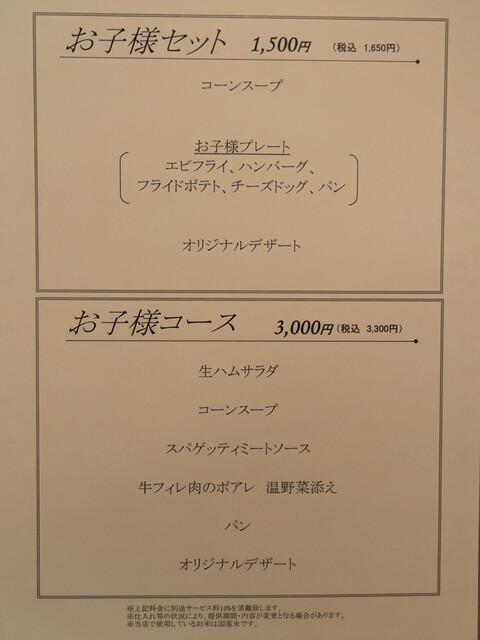 お子様セット 1,500円 （税込 1,650円）
コーンスープ
お子様プレート
エビフライ、ハンバーグ、
フライドポテト、チーズドッグ、パン
オリジナルデザート
お子様コース 3,000円（税込 3,300円）
生ハムサラダ
コーンスープ
スパゲッティミートソース
牛フィレ肉のポアレ 温野菜添え
パン
オリジナルデザート
※上記料金に別途サービス料10%を頂戴致します。
※仕入れ等の状況により、提供期間・内容が変更となる場合があります。
※当店で使用しているお米は国産米です。